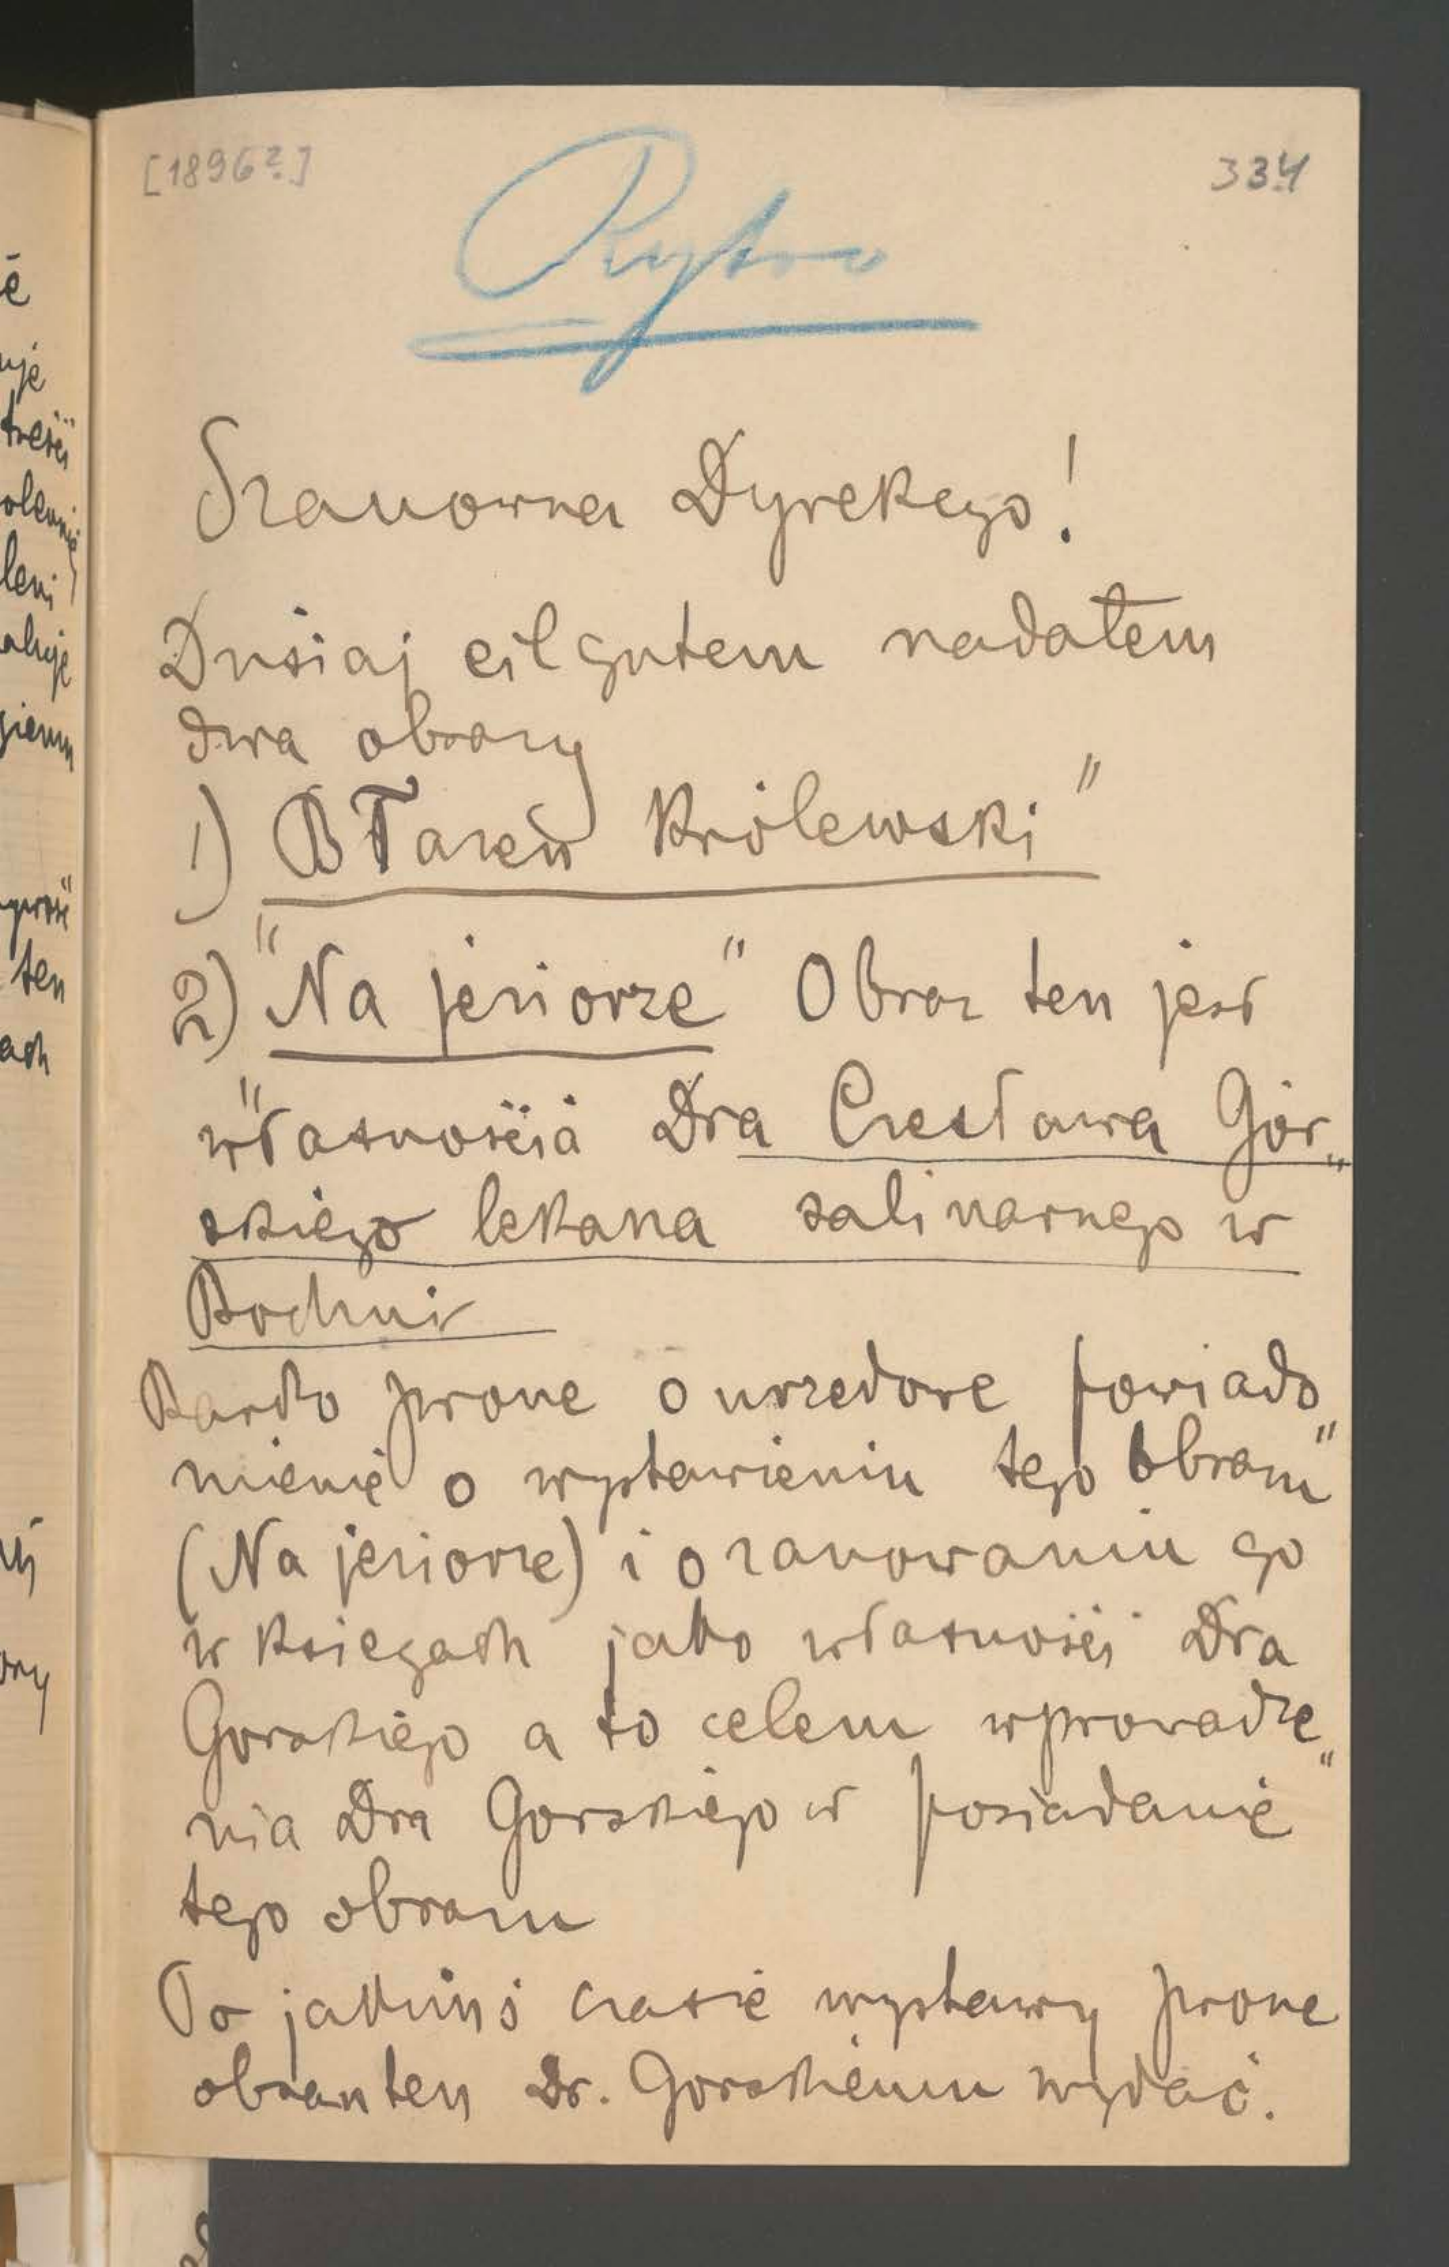 [1896?]
334
Rytro
Szanowna Dyrekcyo!
Dzisiaj cilgutem nadałem
dwa obrazy
1) Błazeń Królewski"
2) "Na jeziorze" Obraz ten jest
własnością Dra Czesława Gór„
skiego lekarza salinarnego w
Bochni
Bardzo proszę o urzędowe powiado„
mienie o wystawieniu tego obrazu"
(Na jeziorze) i o zanowaniu go
w księgach jako własności Dra
Gorskiego a to celem wprowadze„
nia Dra Gorskiego w posiadanie
tego obrazu
Po jakimś czasie wystawy proszę
obraz ten Dr. Gorskiemu wydać.